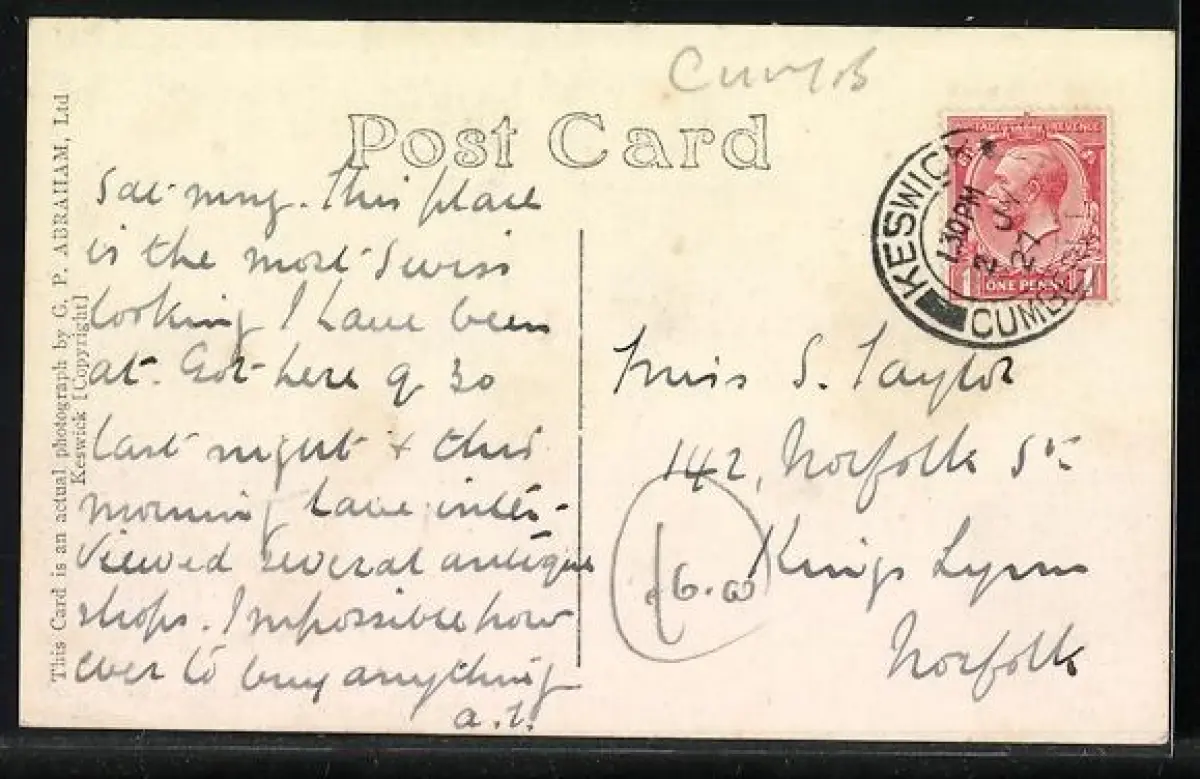 Post Card
This Card is an actual photograph by G. P. ABRAHAM, Ltd
Keswick [Copyright]
Sat mng. This place
is the most Swiss
looking I have been
at. Got here 9 30
last night & this
morning have inter-
viewed several antique
shops. Impossible how
ever to buy anything
a.t.
KESWICK
1.30 PM
2 JY
27
CUMBERLAND
POSTAGE REVENUE
1 ONE PENNY 1
Miss S. Taylor
142, Norfolk St
Kings Lynn
Norfolk